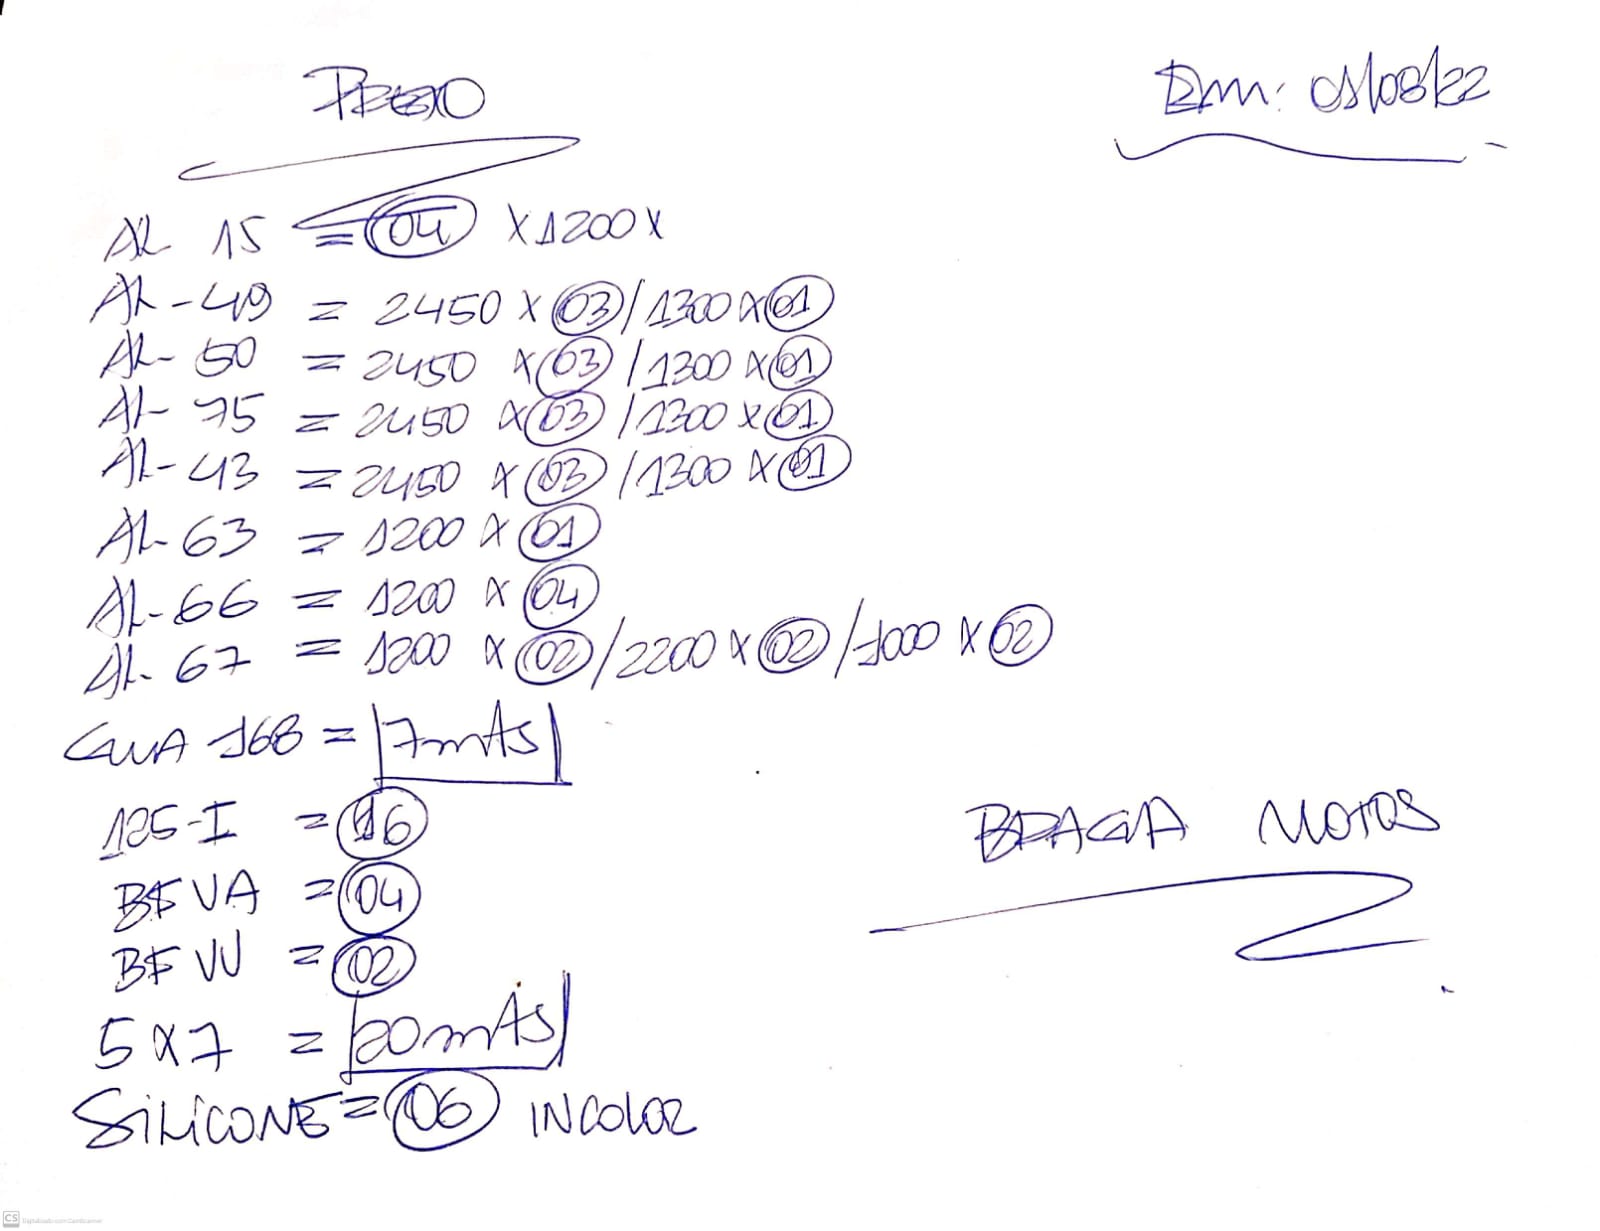 PRETO
Em: 01/08/22
AL 15 = 04 x 1200 x
AL-49 = 2450 x 03 / 1300 x 01
AL-50 = 2450 x 03 / 1300 x 01
AL-75 = 2450 x 03 / 1300 x 01
AL-43 = 2450 x 03 / 1300 x 01
AL-63 = 1200 x 01
AL-66 = 1200 x 04
AL-67 = 1200 x 02 / 2200 x 02 / 1000 x 02
GUIA 168 = 7mts
125-I = 16
BF VA = 04
BF VV = 02
5x7 = 20mts
SILICONE = 06 INCOLOR
BRAGA MOTOS
Digitalizado com CamScanner